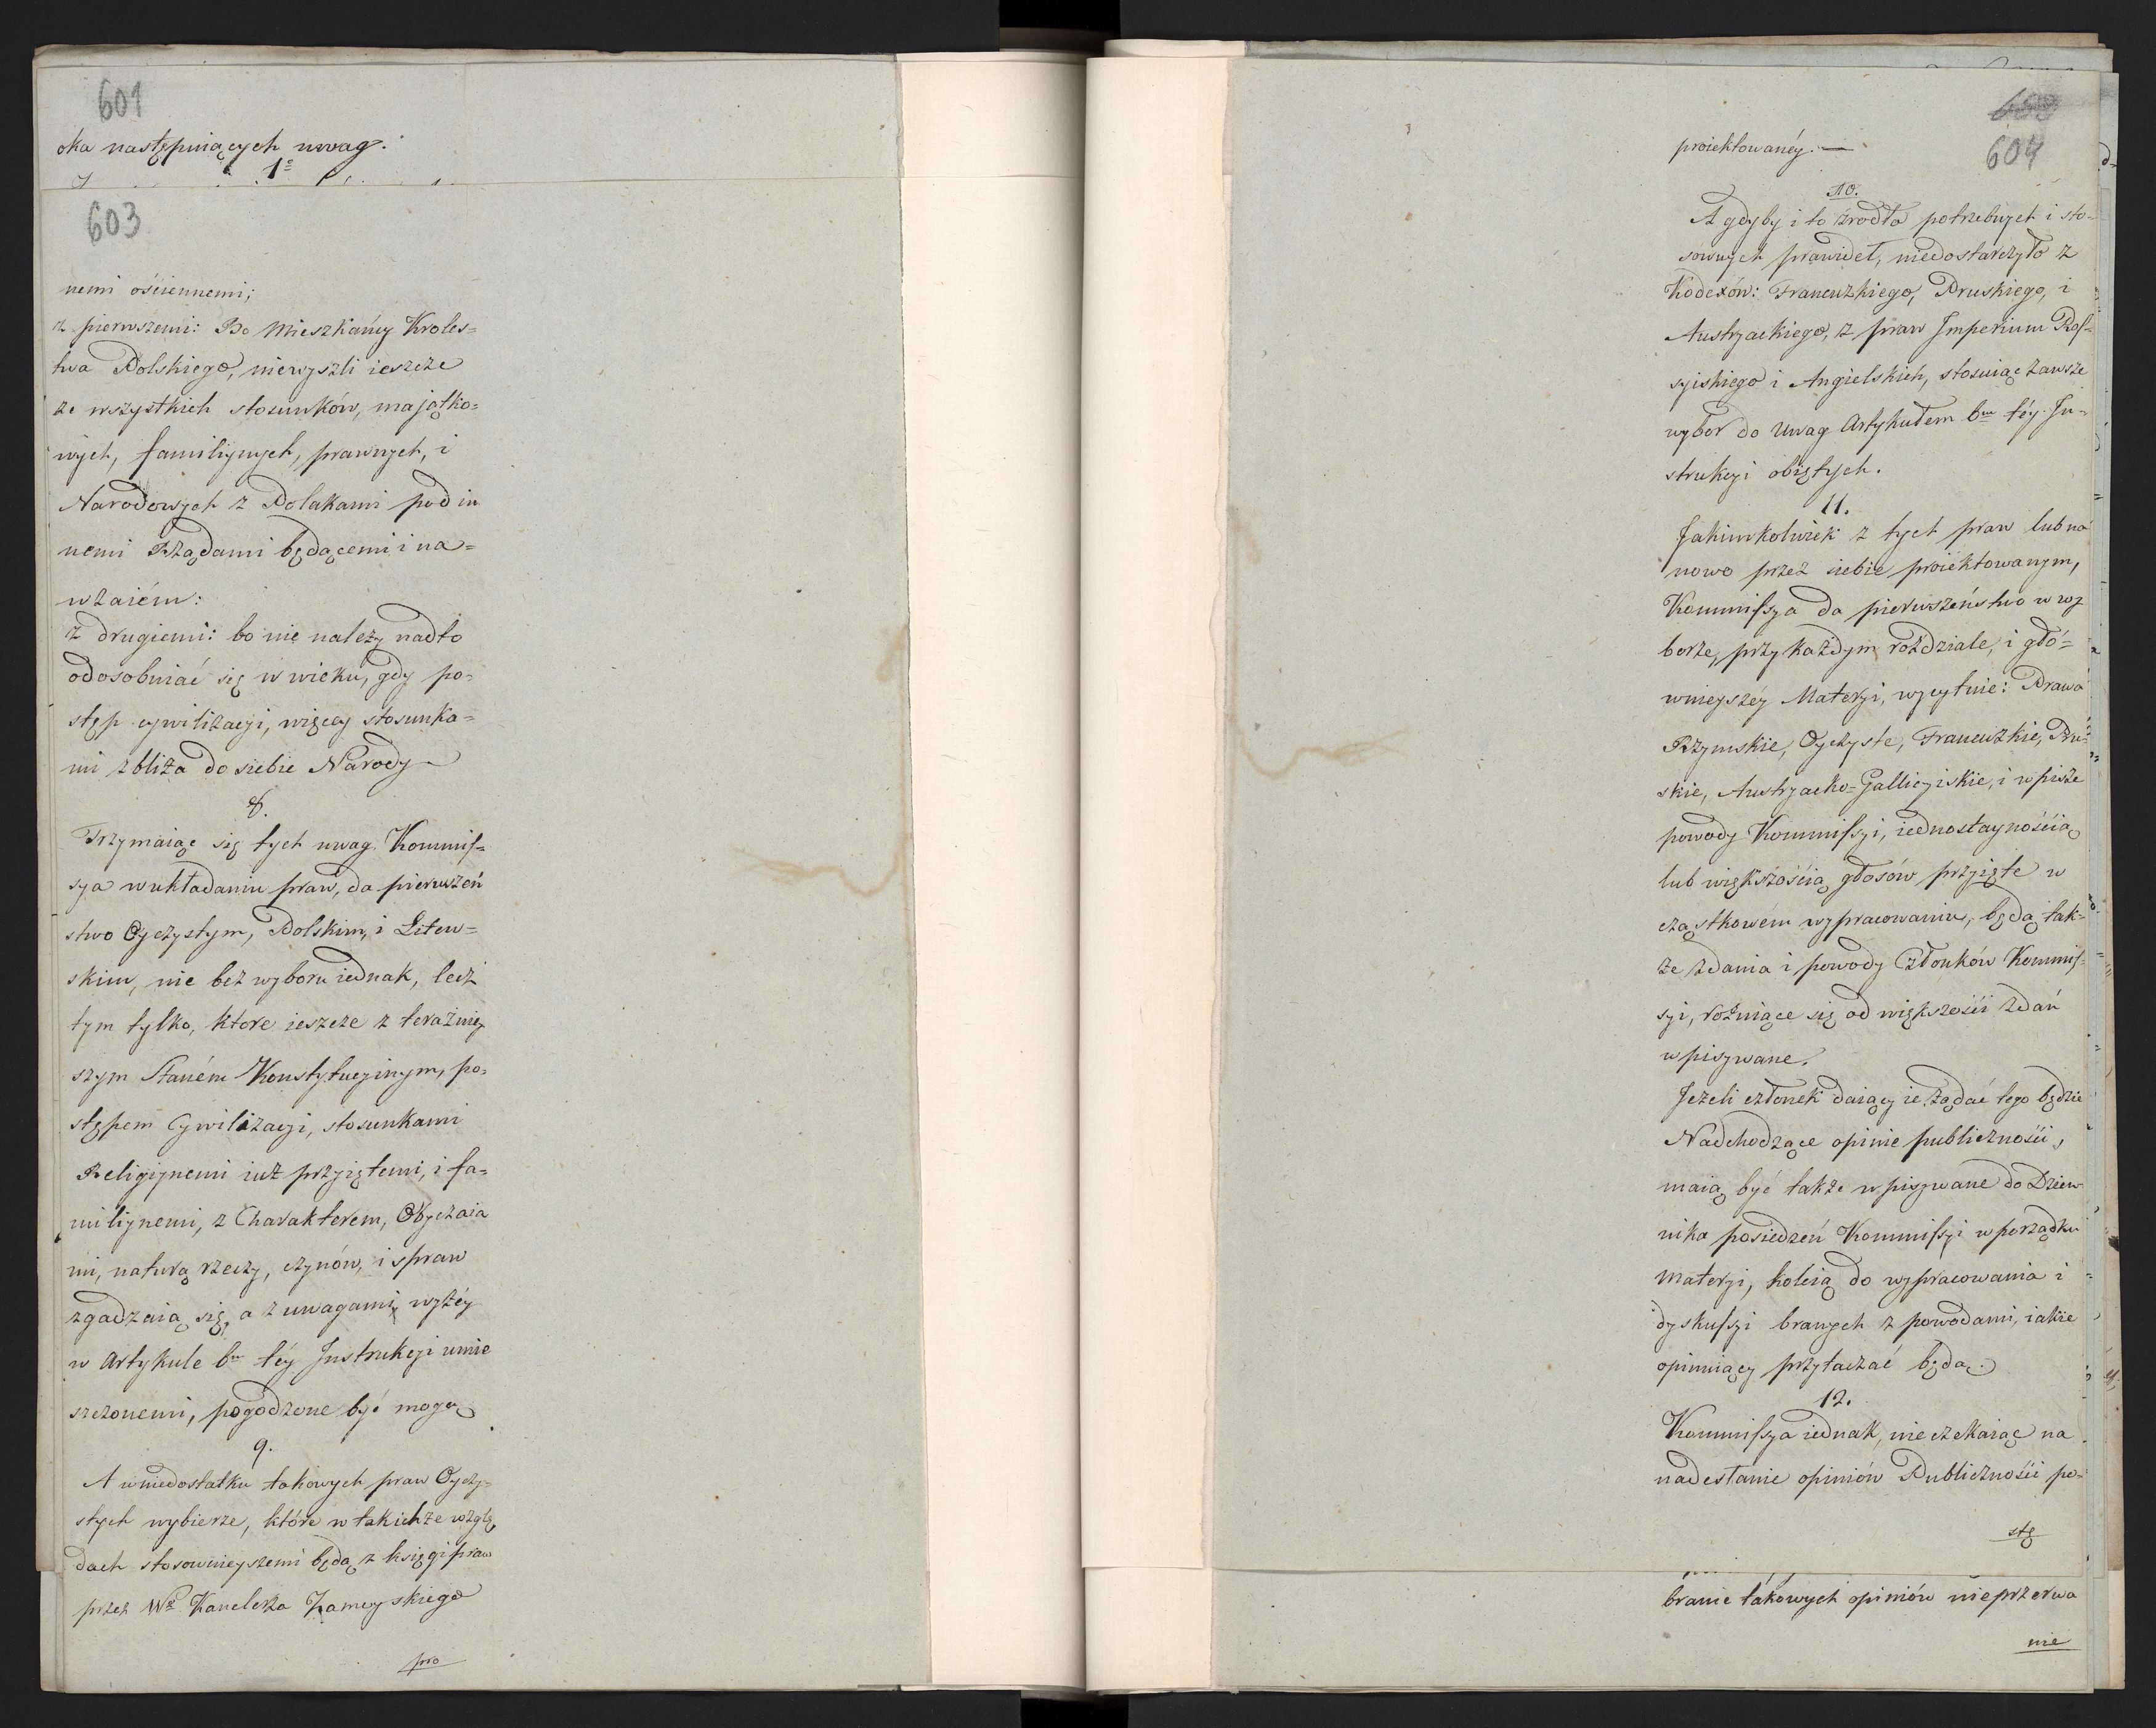 601
oka następuiących uwag.
1º
603
nemi ościennemi;
z pierwszemi: Bo Mieszkańcy Kroles=
twa Polskiego, niewyszli ieszcze
ze wszystkich stosunków, majątko=
wych, familiynych, prawnych, i
Narodowych z Polakami pod in
nemi Rządami będącemi i na=
wzaiém:
z drugiemi: bo nie należy nadto
odosobniać się w wieku, gdy po=
stęp cywilizacyi, więcey stosunka=
mi zbliża do siebie Narody
8.
Trzymaiąc się tych uwag Kommis=
sya w układaniu praw, da pierwszeń
stwo Oyczystym, Polskim, i Litew=
skim, nie bez wyboru iednak, lecz
tym tylko, ktore ieszcze z teraźniey
szym Staném Konstytucyinym, po=
stępem Cywilizacyi, stosunkami
Religiynemi iuż przyiętemi, i fa=
miliynemi, z Charakterem, Obyczaia
mi, naturą rzeczy, czynów, i spraw
zgadzaią się, a z uwagami wyżéy
w Artykule 6m téy Instrukcyi umie
szczonemi, pogodzone być mogą
9.
A w niedostatku takowych praw Oyczy=
stych wybierze, które w takichże wzglę
dach stosownieyszemi będą z księgi praw
przez Wº Kanclerza Zamoyskiego
pro
604
proiektowanéy. —
10.
A gdyby i to źrodło potrzebnych i sto=
sownych prawideł, niedostarczyło z
Kodexów: Francuzkiego, Pruskiego, i
Austryackiego, z praw Imperium Ros=
syiskiego i Angielskich, stosuiąc zawsze
wybor do Uwag Artykułem 6m téy In=
strukcyi obiętych.
11.
Jakimkolwiek z tych praw lub na
nowo przez siebie proiektowanym,
Kommissya da pierwszeństwo w wy
borze, przy każdym rozdziale, i głó=
wnieyszéy Materyi, wycytuie: Prawa
Rzymskie, Oyczyste, Francuzkie, Pru=
skie, Austryacko=Gallicyiskie, i wpisze
powody Kommissyi, iednostaynością
lub większością głosów przyięte w
cząstkowém wypracowaniu, będą tak=
że zdania i powody Członków Kommis=
syi, rożniące się od większości zdań
wpisywane.
Jeżeli członek daiący ie, żądać tego będzie
Nadchodzące opinie publiczności,
maią być także wpisywane do Dzien
nika posiedzeń Kommissyi w porządku
materyi, koleią do wypracowania i
dyskussyi branych z powodami, iakie
opiniuiący przytaczać będą.
12.
Kommissya iednak, nie czekaiąc na
nadesłanie opiniów Publiczności po=
stę
branie takowych opiniów nieprzerwa
nie